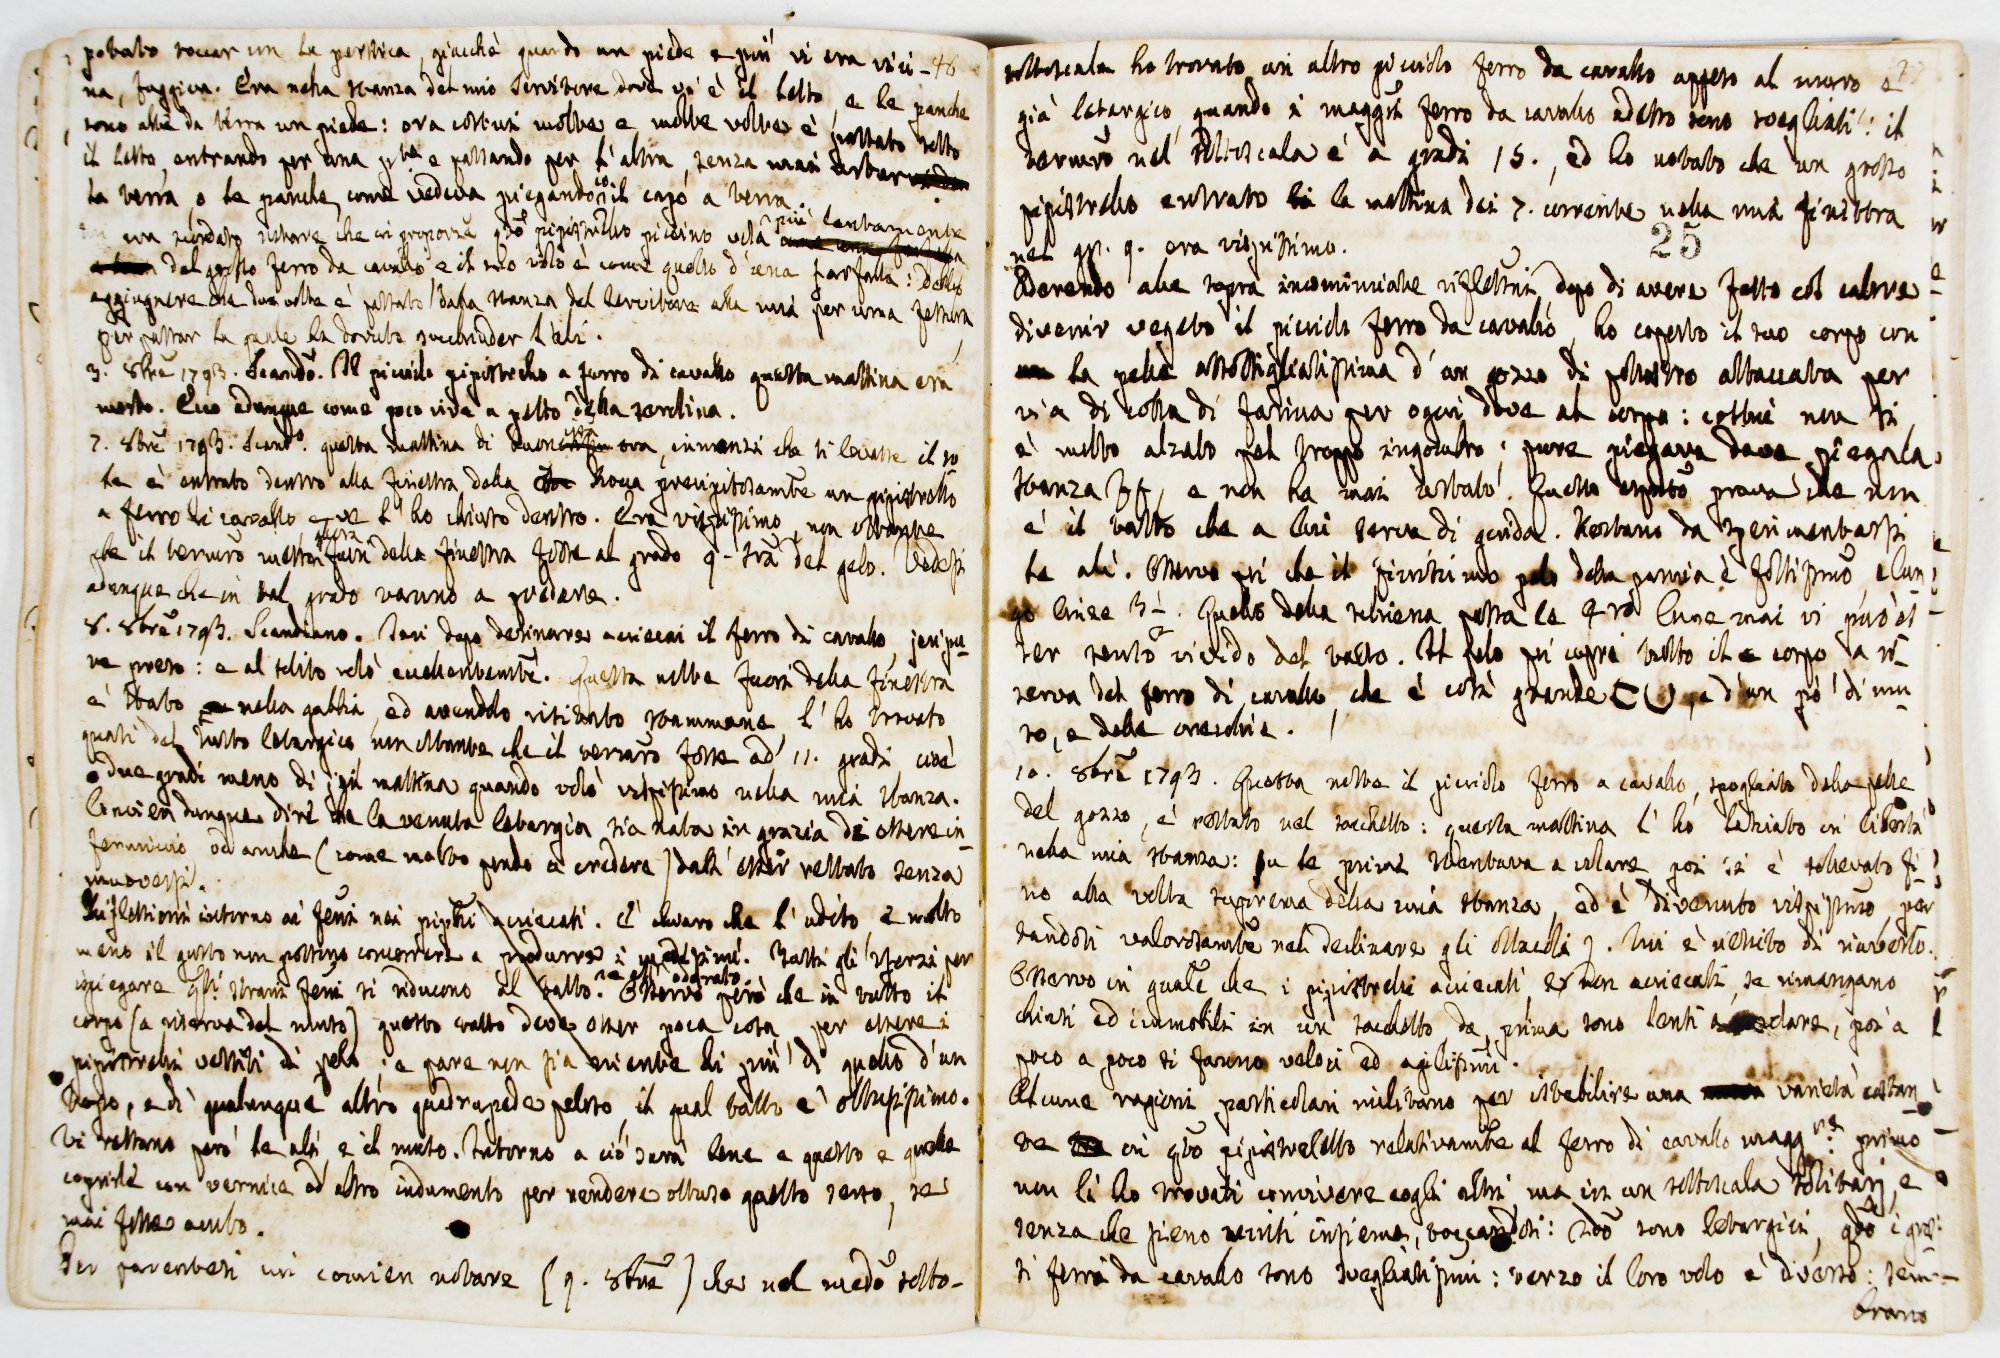 potuto toccar un la pertica, giacchè quando un piede e più vi era vici- 46
na, fuggiva. Era nella stanza del mio Servitore dove vi è il letto, e le panche
sono alte da terra un piede: ora costui molte e molte volte è passato sotto
il letto, entrando per una pte e passando per l'altra, senza mai
la terra, o le panche, come vedeva piegando il capo a terra.
scordato notare che in proporzè qto pipistrello piccino vola più lentamente
del grosso ferro da cavallo e il suo volo è come quello d'una farfalla: Debbo
aggiugnere che due volte è passato dalla stanza del Servitore alla mia per una fessura,
per passar la quale ha dovuto socchiuder l'ali.
3. 8bre 1793. Scando. Il picciolo pipistrello a ferro di cavallo questa mattina era
morto. Ecco adunque come poco vive a petto della serotina.
7. 8bre 1793. Scando. questa mattina di buon ora, innanzi che si levasse il so
le è entrato dentro alla finestra della Rocca precipitosamte un pipistrello
a ferro di cavallo e ve l'ho chiuso dentro. Era vispissimo, non ostante
che il termro messo fuori della finestra fosse al grado 9 - sra del gelo. Vedesi
adunque che in tal grado vanno a predare.
8. 8bre 1793. Scandiano. Jeri dopo desinare acciecai il ferro di cavallo, jeri pu-
re preso: e al solito volò eccellentemte. Questa notte fuori della finestra
è stato nella gabbia, ed avendolo ritirato stammane, l'ho trovato
quasi del tutto letargico non ostante che il termro fosse ad 11. gradi cioè
due gradi meno di jeri mattina quando volò vispissimo nella mia stanza.
Convien dunque dire che la venuta letargia sia nata in grazia di essere in-
fermiccio, od anche (come molto pendo a credere) dall'esser restato senza
muoversi.
Riflessioni intorno ai feni nei pipistri acciecati. È chiaro che l'udito, e molto
meno il gusto non possono concorrere a produrre i medesimi. Tutti gli sforzi per
ispiegare qsti strani feni si riducono al tatto. se all'odorato Osservo però che in tutto il
corpo (a riserva del muso) questo tatto deve esser poca cosa per essere i
pipistrelli vestiti di pelo: e pare non sia niente di più di quello d'un
topo, e di qualunque altro quadrupede peloso, il qual tatto è ottusissimo.
Vi restano però le ali e il muso. Intorno a ciò sarà bene e questo e quelle
coprirle con vernice od altro indumento per rendere ottuso questo senso, se
mai fosse acuto.
Per parentesi mi convien notare (9. 8bre) che nel medo sotto-
sottoscala ho trovato un altro picciolo ferro da cavallo appeso al muro e
già letargico, quando i maggiori ferro da cavallo adesso sono svegliati: il
termro nel sottoscala è a gradi 15., ed ho notato che un grosso
pipistrello entrato la mattina dei 7. corrente nella mia finestra
nel gr. 9. era vispissimo.
25
Aderendo alle sopra incominciate riflessioni, dopo di avere fatto col calore
divenir vegeto il picciolo ferro da cavallo, ho coperto il suo corpo con
la pelle assottigliatissima d'un gozzo di pollastro attaccata per
via di colla di farina per ogni dove al corpo: costui non si
è molto alzato pel troppo ingombro; pure piegava dove piega la
stanza, e non ha mai urtato. Questo esperto prova che non
è il tatto che a lui serva di guida. Restano da sperimentarsi
le ali. Osservo poi che il finissimo pelo della pancia è foltissimo, e lun
go linee 3 ½. Quello della schiena passa le 4 Come mai vi può es
ser sentoe vivido del tatto. Il pelo poi copre tutto il corpo a ri-
serva del ferro di cavallo, che è così grande, e d'un pò di mu-
so, e delle orecchie.
10. 8bre 1793. Questa notte il picciolo ferro a cavallo, spogliato della pelle
del gozzo, è restato nel sacchetto: questa mattina l'ho lasciato in libertà
nella mia stanza: su le prime stentava a volare poi si è sollevato fi-
no alla volta suprema della mia stanza, ed è divenuto vispissimo, por
tandosi valorosamte nel declinare gli ostacoli. Mi è riescito di riaverlo.
Osservo in gnale che i pipistrelli acciecati, e non acciecati, se rimangano
chiusi ed immobili in un sacchetto da prima sono lenti a volare, poi a
poco a poco si fanno veloci ed agilissimi.
Alcune ragioni particolari militano per istabilire una varietà costan
te in qto pipistrelletto relativamte al ferro di cavallo maggre: primo
non li ho trovati convivere cogli altri ma in un sottoscala solitarj, e
senza che sieno uniti insieme, toccandosi: 2do sono letargici, qdo i gros
si ferri da cavallo sono svegliatissimi: terzo il loro volo è diverso: sem-
brano